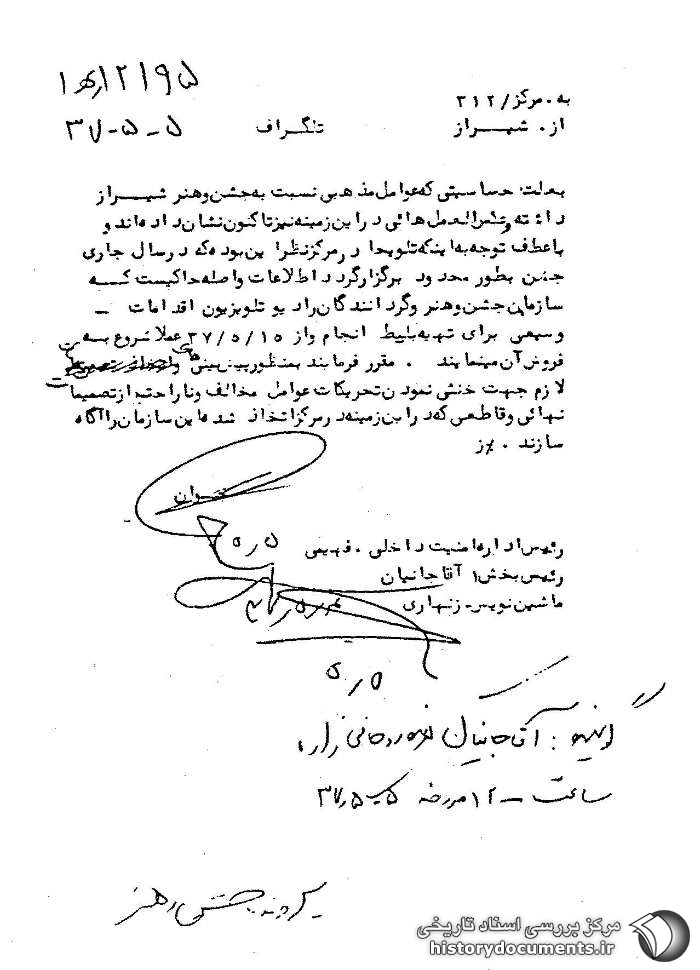 ۱۲۱۹۵/ ﻫ ۱
به. مرکز/ ۳۱۲
از. شیراز تلگراف ۳۷-۵-۵
بعلت حساسیتی که عوامل مذهبی نسبت به جشن و هنر شیراز
داشته و عکس العمل هائی در این زمینه نیز تاکنون نشان داده اند و
با عطف توجه به اینکه تلویحا در مرکز نظر این بوده که در سال جاری
جشن بطور محدود برگزار گردد اطلاعات واصله حاکیست که
سازمان جشن و هنر و گردانندگان رادیو تلویزیون اقدامات
وسیعی برای تهیه بلیط انجام و از ۳۷/۵/۱۵ عملا شروع به
فروش آن مینمایند . مقرر فرمایند بمنظور پیش بینی های
لازم جهت خنثی نمودن تحریکات عوامل مخالف و ناراحت از تصمیمات
نهائی و قاطعی که در این زمینه در مرکز اتخاذ شده این سازمان را آگاه
سازند . %ز
رئیس اداره امنیت داخلی . فهیمی ۵/۵
رئیس بخش ۱ آقاجانیان
ماشین نویس. زنهاری
۵/۵
گوینده : آقاجانیان
ساعت ۱۲ مورخه ۳۷/۵/۵
پرونده جشن هنر
مرکز بررسی اسناد تاریخی
historydocuments.ir